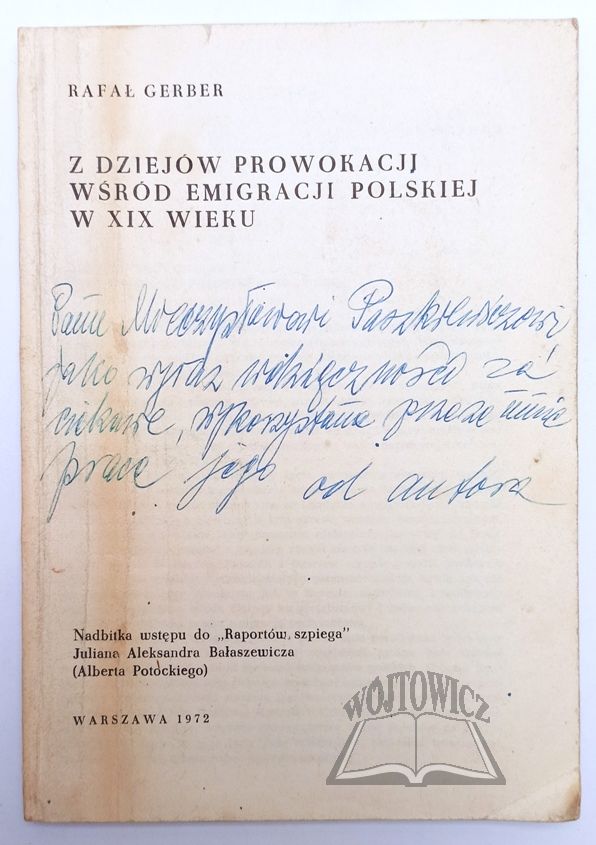 RAFAŁ GERBER
Z DZIEJÓW PROWOKACJI
WŚRÓD EMIGRACJI POLSKIEJ
W XIX WIEKU
Panu Mieczysławowi Paszkiewiczowi
jako wyraz wdzięczności za
ciekawe, wykorzystane przeze mnie
prace jego od autora
Nadbitka wstępu do „Raportów szpiega”
Juliana Aleksandra Bałaszewicza
(Alberta Potockiego)
WARSZAWA 1972
WÓJTOWICZ